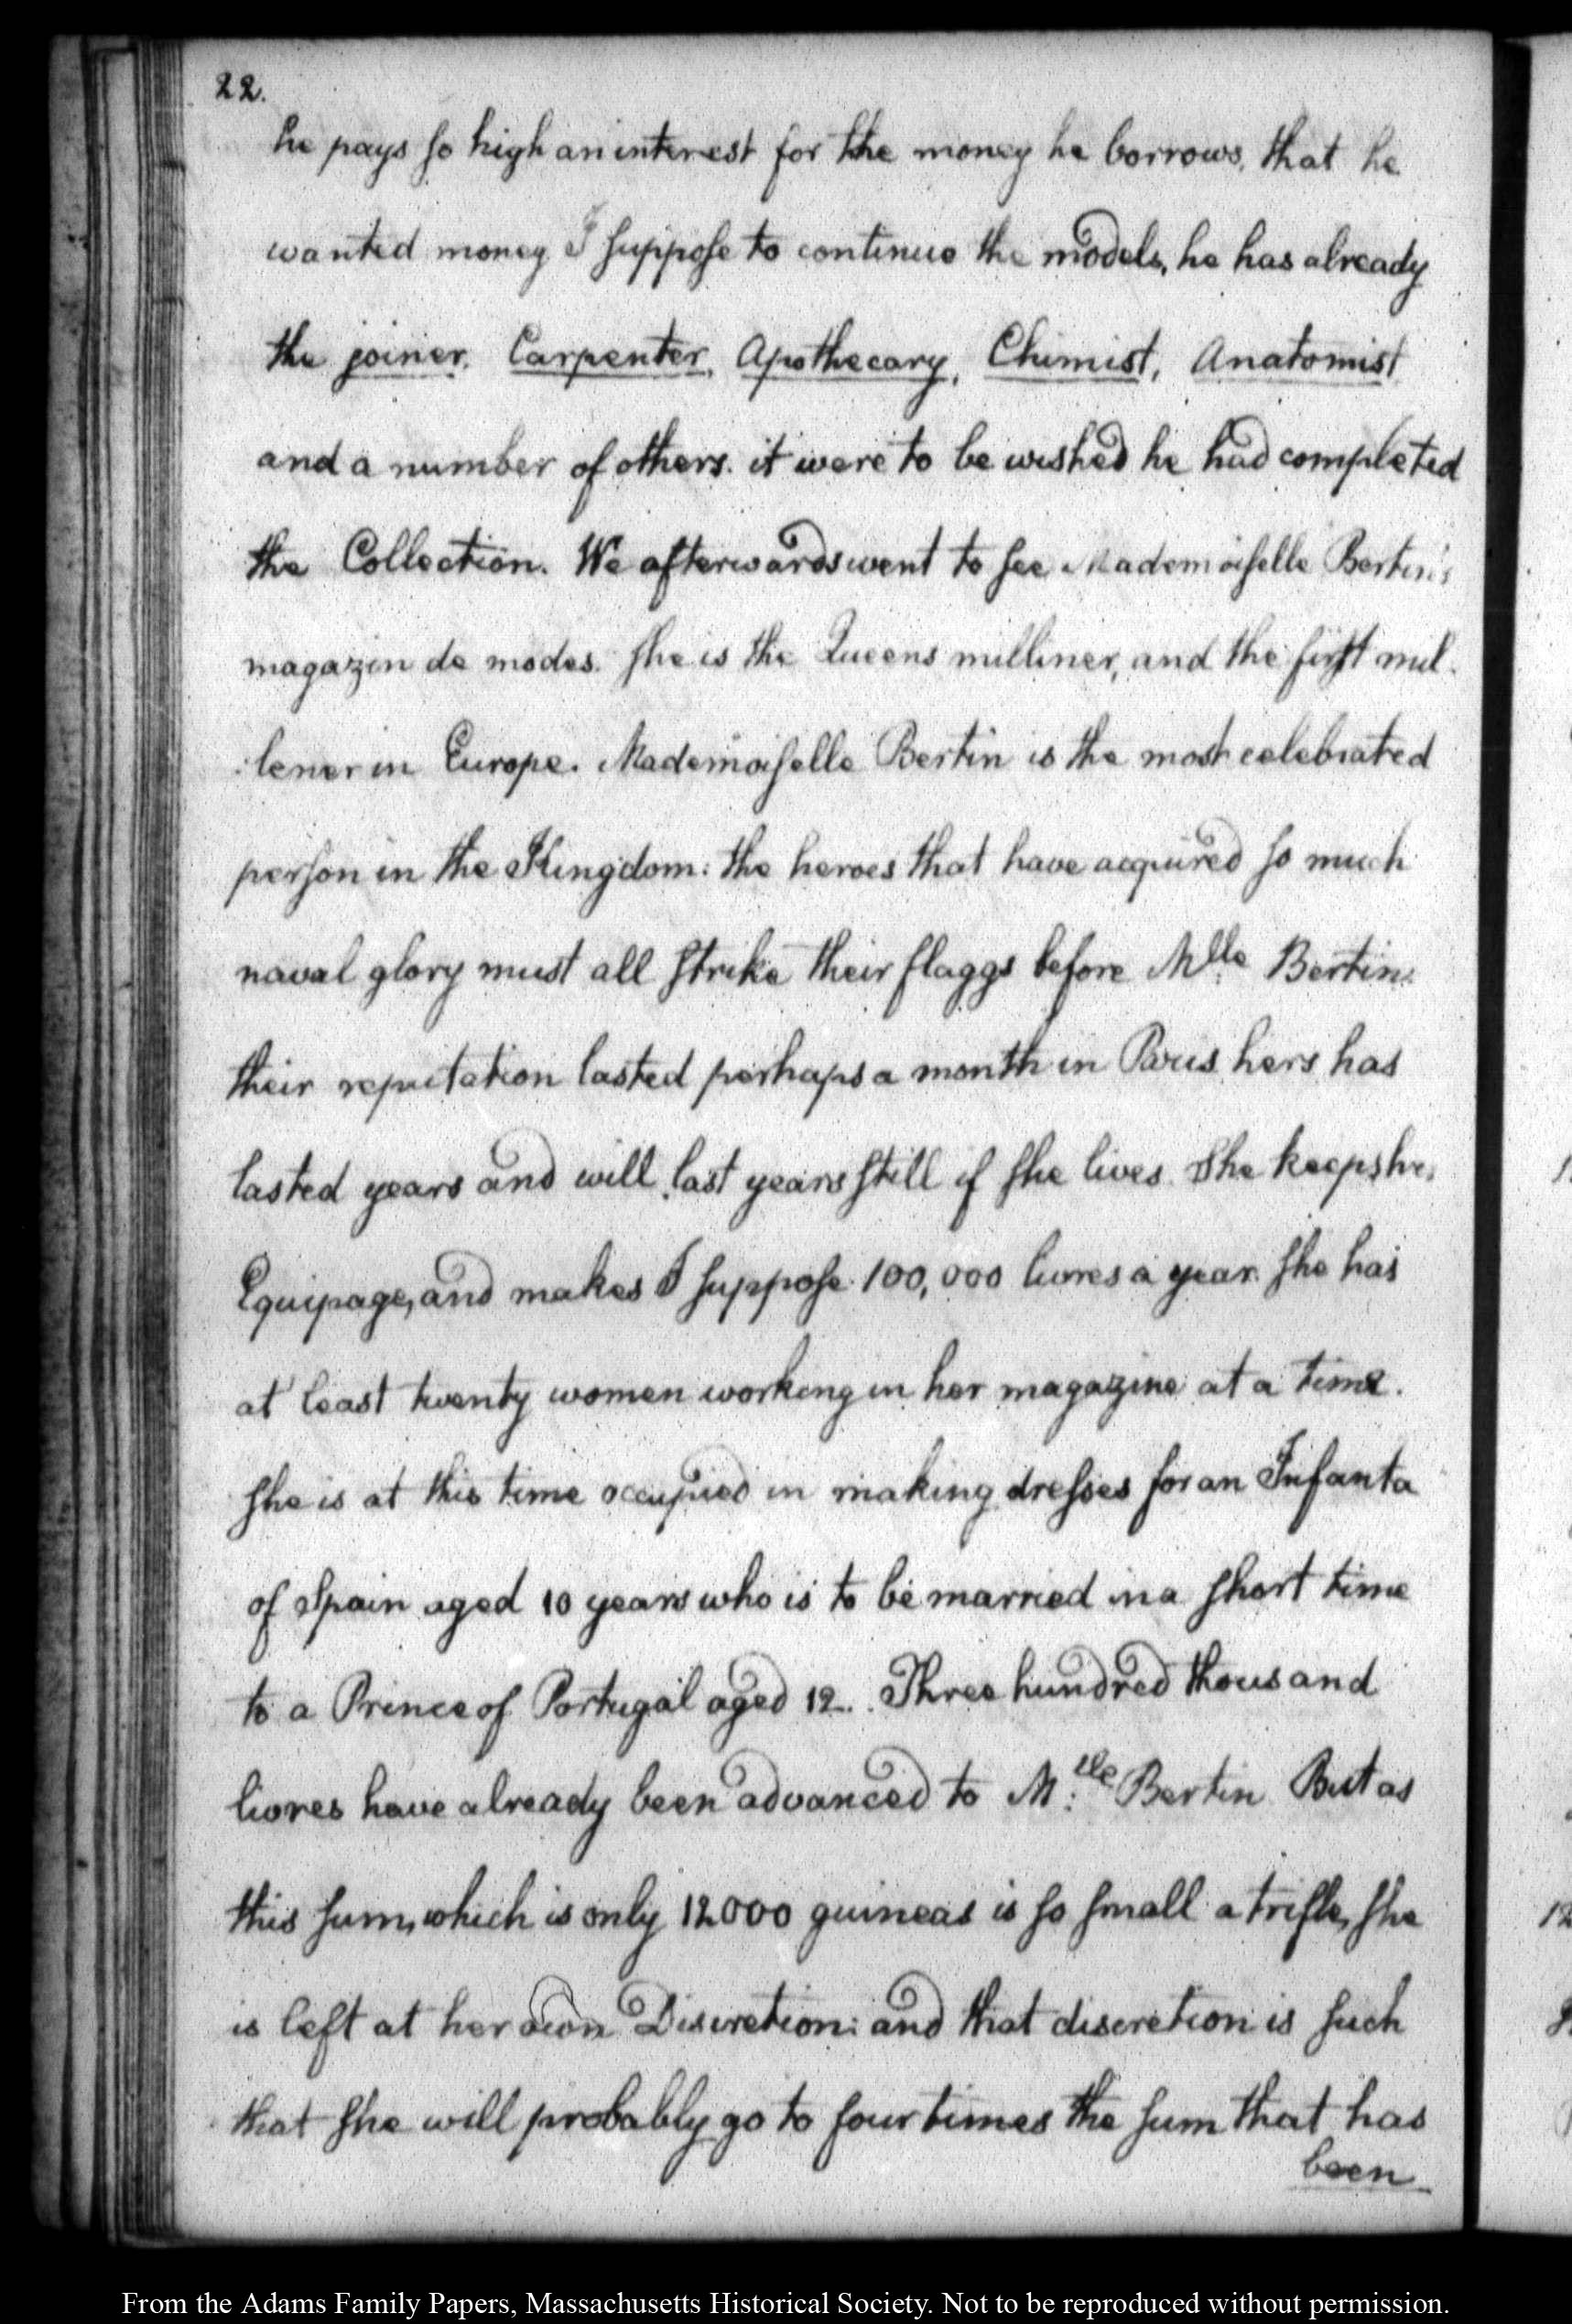 22.
he pays so high an interest for the money he borrows, that he
wanted money I suppose to continue the models, he has already
the joiner, Carpenter, Apothecary, Chimist, Anatomist
and a number of others. it were to be wished he had completed
the Collection. We afterwards went to see Mademoiselle Bertin's
magazin de modes. she is the Queens milliner, and the first mil-
:lener in Europe. Mademoiselle Bertin is the most celebrated
person in the Kingdom: the heroes that have acquired so much
naval glory must all strike their flaggs before Mlle Bertin.
their reputation lasted perhaps a month in Paris, hers has
lasted years and will last years still if she lives. She keeps her
Equipage, and makes I suppose 100,000 livres a year. she has
at least twenty women working in her magazine at a time.
she is at this time occupied in making dresses for an Infanta
of Spain aged 10 years who is to be married in a short time
to a Prince of Portugal aged 12. Three hundred thousand
livres have already been advanced to M:lle Bertin But as
this sum, which is only 12000 guineas is so small a trifle, she
is left at her own Discretion: and that discretion is such
that she will probably go to four times the sum that has
been
From the Adams Family Papers, Massachusetts Historical Society. Not to be reproduced without permission.